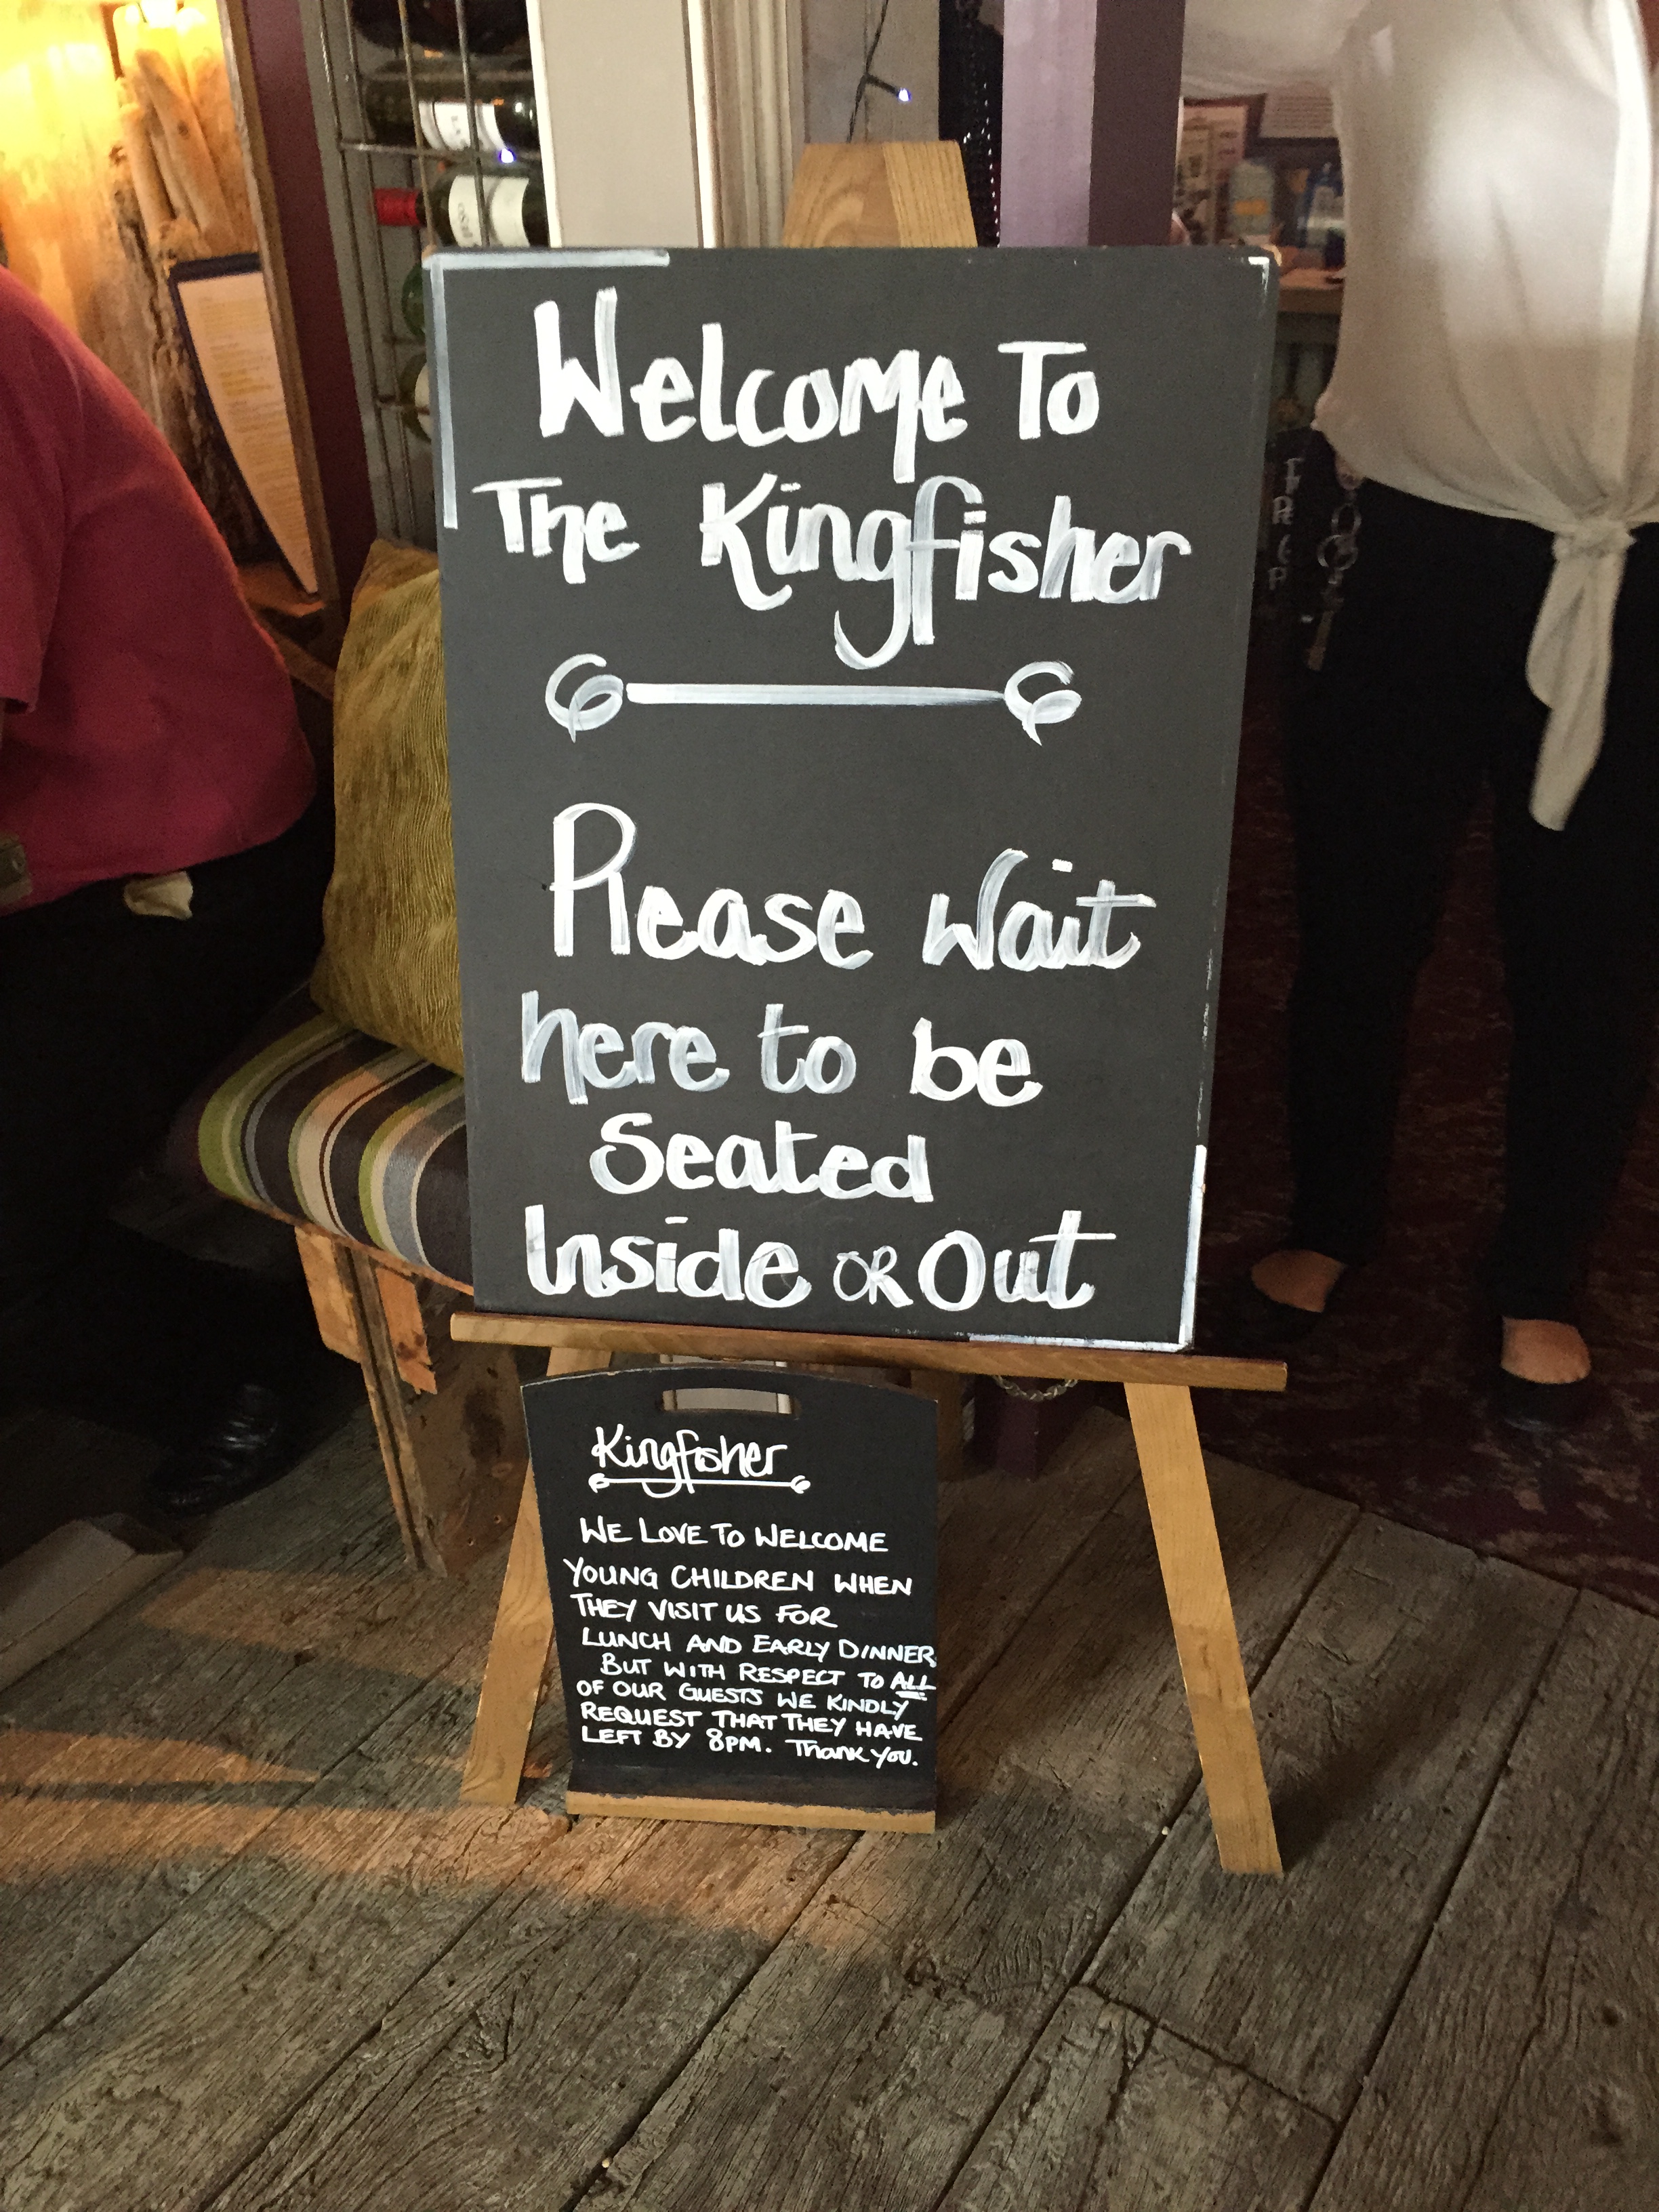 Welcome To
The Kingfisher
Please Wait
here to be
Seated
Inside OR Out
Kingfisher
WE LOVE TO WELCOME
YOUNG CHILDREN WHEN
THEY VISIT US FOR
LUNCH AND EARLY DINNER.
BUT WITH RESPECT TO ALL
OF OUR GUESTS WE KINDLY
REQUEST THAT THEY HAVE
LEFT BY 8PM. Thank you.